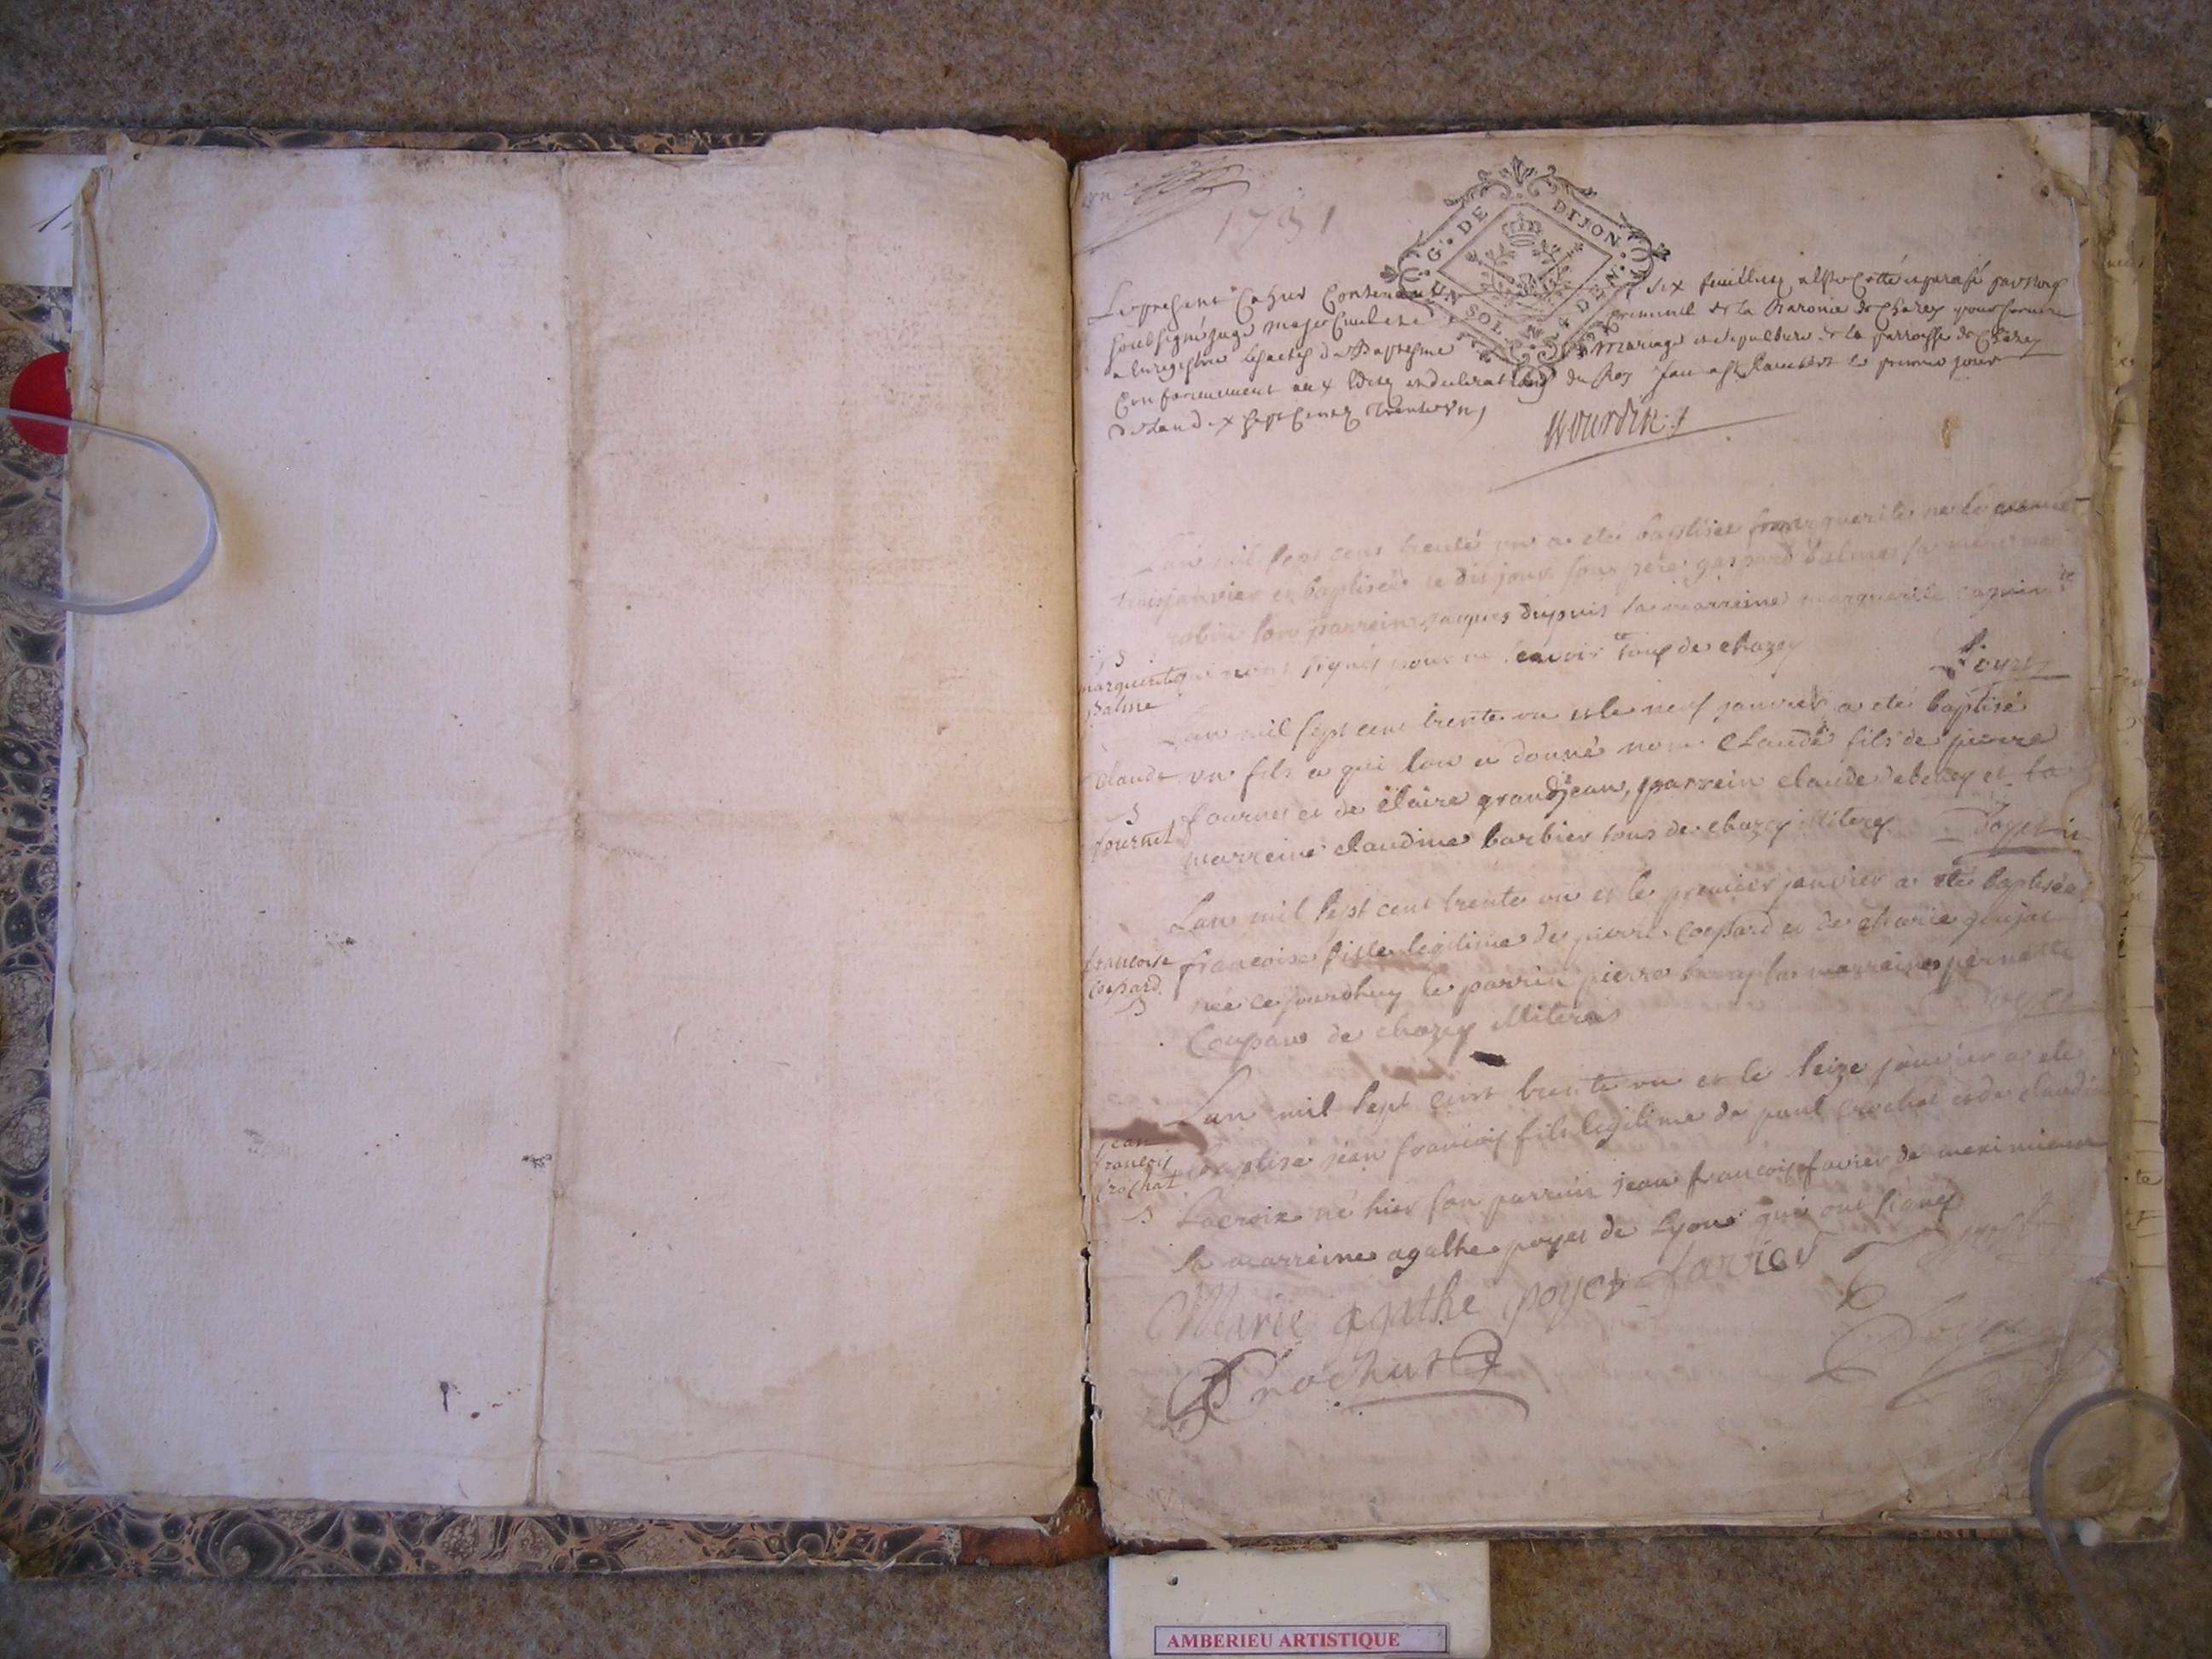 1731
G. DE DIJON
UN SOL
DEN.
Le present Cahier Contenant six feuillets a Esté Cotté et parafé par Nous
soubsigné Juge Maje Civil et criminel de la Baronie de Chazey pour servir
a Enregistrer les actes de Baptesme Mariage et sepulture de la parroisse de Chazey
Conformement aux Edits et declarations du Roy fait a St Rambert le premier jour
de Lan dix sept Cents Trente Un
Lan mil sept cens trente un a eté baptisée marguerite née le
trois janvier et baptisée le dit jour son père gaspard balme sa mere
robin son parrein jacques dupuis sa marreine marguerite
signés pour ne scavoir tous de chazey
marguerite
balme
Lan mil sept cens trente un et le neuf janvier a eté baptisé
claude
un fils a qui lon a donné nom Claude fils de pierre
fournet et de claire grandjean, parrein claude debeney et la
fournet
marreine claudine barbier tous de chazey illiterez
Lan mil sept cens trente un et le premier janvier a eté baptisée
francoise
cospard
francoise fille legitime de pierre Cospard et de marie goujat
née ce jourdhuy le parrin pierre la marreine pernette
de chazey illiteres
Lan mil sept cens trente un et le seize janvier a eté
jean
francois
crochat
baptisé jean francois fils legitime de paul crochat et de claudine
Lacroix né hier son parrein jean francois favier de meximieux
la marreine agathe poyet de Lyon qui ont signés
Marie agathe poyet favier
Crochat
AMBERIEU ARTISTIQUE